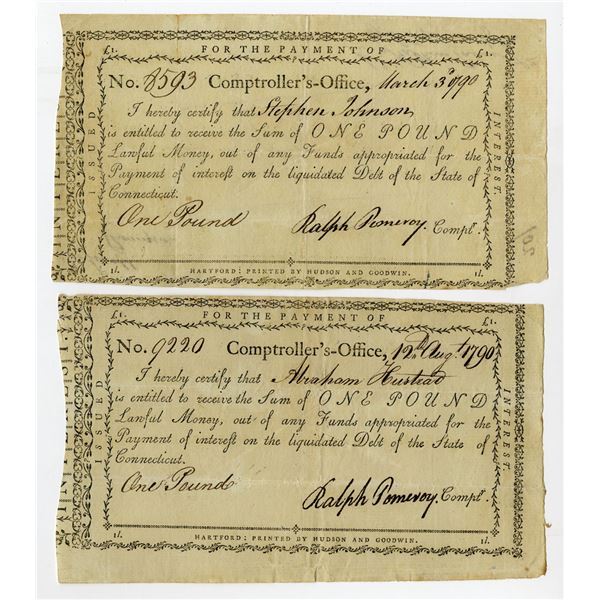 £1. FOR THE PAYMENT OF £1.
No. 8593 Comptroller's-Office, March 3d 1790
I hereby certify that Stephen Johnson
is entitled to receive the Sum of ONE POUND
Lawful Money, out of any Funds appropriated for the
Payment of interest on the liquidated Debt of the State of
Connecticut.
One Pound Ralph Pomeroy. Comptr.
1l. HARTFORD: PRINTED BY HUDSON AND GOODWIN. 1l.
ISSUED
INTEREST.
£1. FOR THE PAYMENT OF £1.
No. 9220 Comptroller's-Office, 12th Augt. 1790
I hereby certify that Abraham
is entitled to receive the Sum of ONE POUND
Lawful Money, out of any Funds appropriated for the
Payment of interest on the liquidated Debt of the State of
Connecticut.
One Pound Ralph Pomeroy, Comptr.
1l. HARTFORD: PRINTED BY HUDSON AND GOODWIN. 1l.
ISSUED
INTEREST.